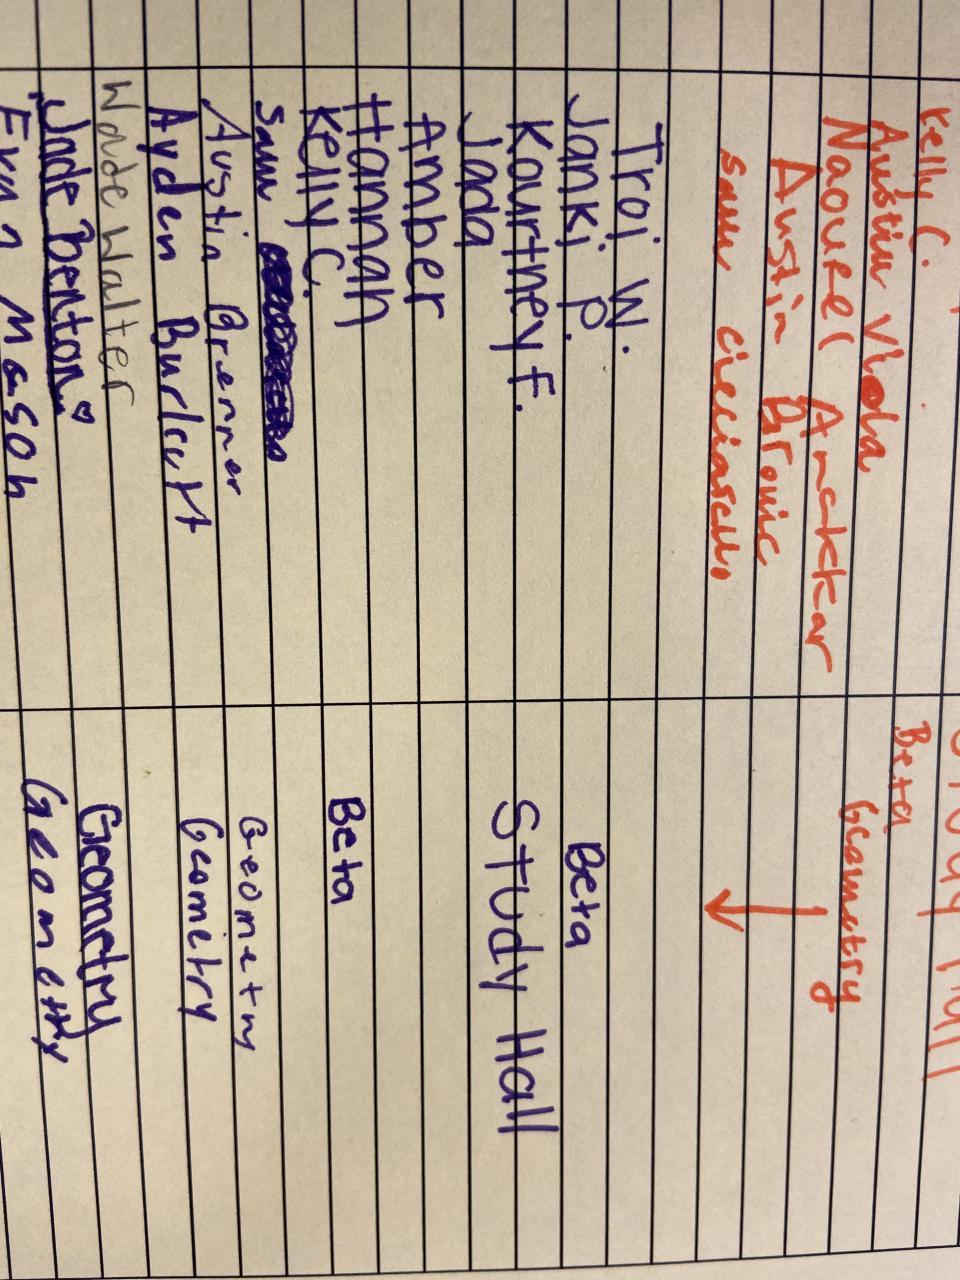 Study Hall
Kelly C. Beta
Austin Viola Geometry
Naourel
Austin
sam
Troi W.
Janki P. Beta
Kourtney F. Study Hall
Jada
Amber
Hannah
Kelly C. Beta
sam
Austin Brenner Geometry
Ayden Burlett Geometry
Wade Walter
Jade Benton Geometry
Evan Mason Geometry